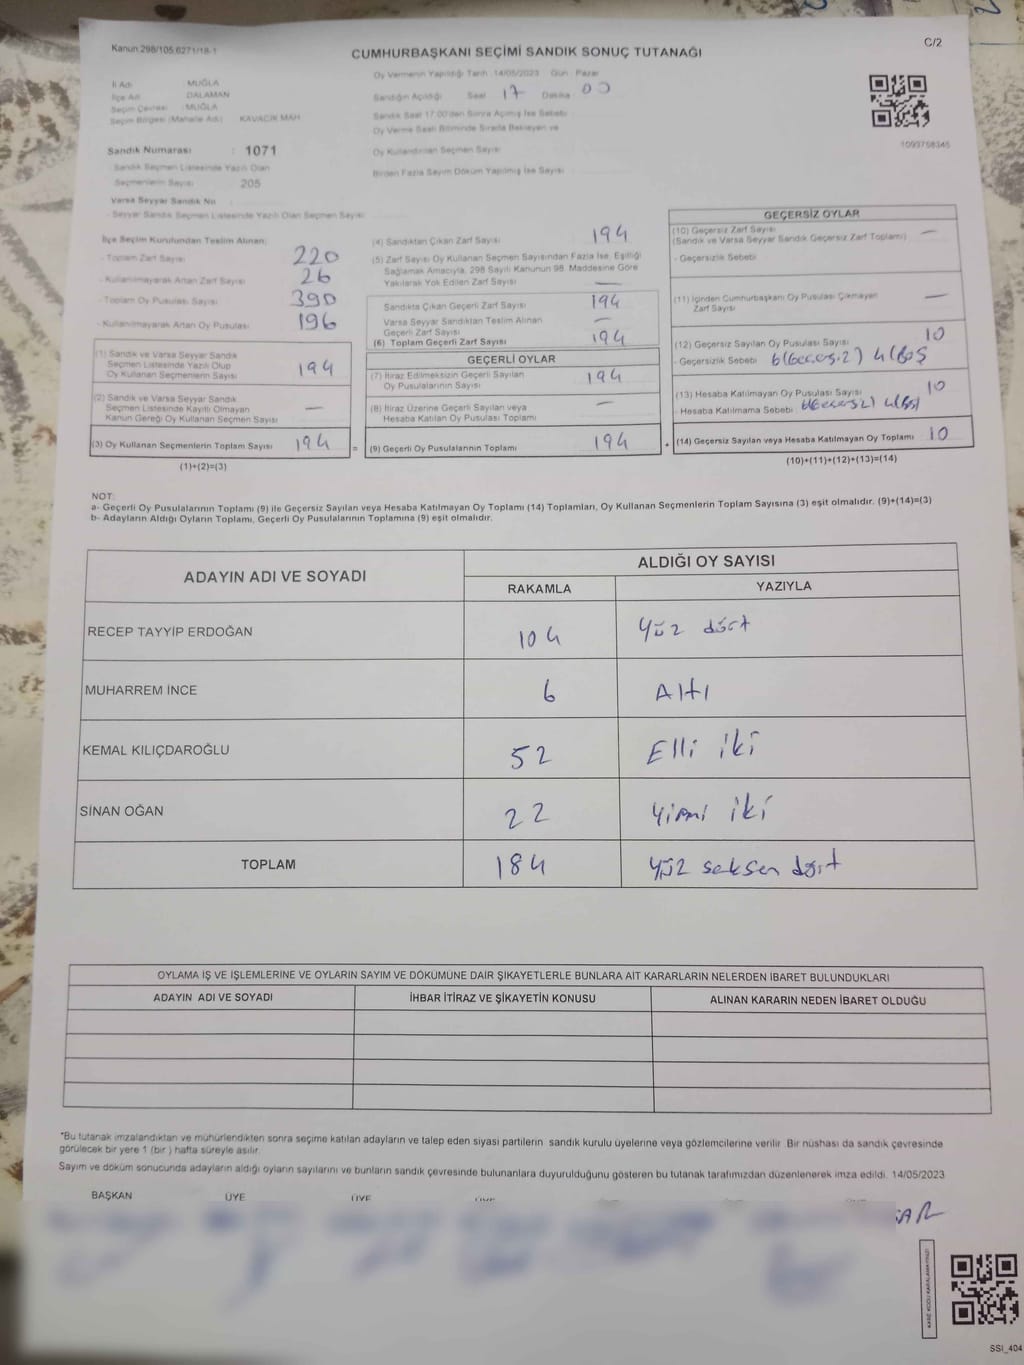 Kanun 298/105,6271/18-1
CUMHURBAŞKANI SEÇİMİ SANDIK SONUÇ TUTANAĞI
C/2
İl Adı : MUĞLA
İlçe Adı : DALAMAN
Seçim Çevresi : MUĞLA
Seçim Bölgesi (Mahalle Adı) : KAVACIK MAH
Sandık Numarası : 1071
Sandık Seçmen Listesinde Yazılı Olan
Seçmenlerin Sayısı 205
Varsa Seyyar Sandık No
- Seyyar Sandık Seçmen Listesinde Yazılı Olan Seçmen Sayısı
Oy Vermenin Yapıldığı Tarih: 14/05/2023 Gün: Pazar
Sandığın Açıldığı Saat 17 Dakika 00
Sandık Saat 17.00'den Sonra Açılmış İse Sebebi
Oy Verme Saati Bitiminde Sırada Bekleyen ve
Oy Kullandırılan Seçmen Sayısı
Birden Fazla Sayım Döküm Yapılmış İse Sayısı
1099758345
İlçe Seçim Kurulundan Teslim Alınan;
- Toplam Zarf Sayısı 220
- Kullanılmayarak Artan Zarf Sayısı 26
- Toplam Oy Pusulası Sayısı 390
- Kullanılmayarak Artan Oy Pusulası 196
(1) Sandık ve Varsa Seyyar Sandık
Seçmen Listesinde Yazılı Olup
Oy Kullanan Seçmenlerin Sayısı 194
(2) Sandık ve Varsa Seyyar Sandık
Seçmen Listesinde Kayıtlı Olmayan
Kanun Gereği Oy Kullanan Seçmen Sayısı —
(3) Oy Kullanan Seçmenlerin Toplam Sayısı 194 =
(1)+(2)=(3)
(4) Sandıktan Çıkan Zarf Sayısı 194
(5) Zarf Sayısı Oy Kullanan Seçmen Sayısından Fazla İse, Eşitliği
Sağlamak Amacıyla, 298 Sayılı Kanunun 98. Maddesine Göre
Yakılarak Yok Edilen Zarf Sayısı —
Sandıkta Çıkan Geçerli Zarf Sayısı 194
Varsa Seyyar Sandıktan Teslim Alınan
Geçerli Zarf Sayısı —
(6) Toplam Geçerli Zarf Sayısı 194
GEÇERLİ OYLAR
(7) İtiraz Edilmeksizin Geçerli Sayılan
Oy Pusulalarının Sayısı 194
(8) İtiraz Üzerine Geçerli Sayılan veya
Hesaba Katılan Oy Pusulası Toplamı —
(9) Geçerli Oy Pusulalarının Toplamı 194 +
GEÇERSİZ OYLAR
(10) Geçersiz Zarf Sayısı —
(Sandık ve Varsa Seyyar Sandık Geçersiz Zarf Toplamı)
- Geçersizlik Sebebi
(11) İçinden Cumhurbaşkanı Oy Pusulası Çıkmayan
Zarf Sayısı —
(12) Geçersiz Sayılan Oy Pusulası Sayısı 10
- Geçersizlik Sebebi 6(Geçersiz) 4(Boş
(13) Hesaba Katılmayan Oy Pusulası Sayısı 10
- Hesaba Katılmama Sebebi
(14) Geçersiz Sayılan veya Hesaba Katılmayan Oy Toplamı 10
(10)+(11)+(12)+(13)=(14)
NOT:
a- Geçerli Oy Pusulalarının Toplamı (9) ile Geçersiz Sayılan veya Hesaba Katılmayan Oy Toplamı (14) Toplamları, Oy Kullanan Seçmenlerin Toplam Sayısına (3) eşit olmalıdır. (9)+(14)=(3)
b- Adayların Aldığı Oyların Toplamı, Geçerli Oy Pusulalarının Toplamına (9) eşit olmalıdır.
ADAYIN ADI VE SOYADI ALDIĞI OY SAYISI
RAKAMLA YAZIYLA
RECEP TAYYİP ERDOĞAN 104 Yüz dört
MUHARREM İNCE 6 Altı
KEMAL KILIÇDAROĞLU 52 Elli iki
SİNAN OĞAN 22 Yirmi iki
TOPLAM 184 Yüz seksen dört
OYLAMA İŞ VE İŞLEMLERİNE VE OYLARIN SAYIM VE DÖKÜMÜNE DAİR ŞİKAYETLERLE BUNLARA AİT KARARLARIN NELERDEN İBARET BULUNDUKLARI
ADAYIN ADI VE SOYADI İHBAR İTİRAZ VE ŞİKAYETİN KONUSU ALINAN KARARIN NEDEN İBARET OLDUĞU
*Bu tutanak imzalandıktan ve mühürlendikten sonra seçime katılan adayların ve talep eden siyasi partilerin sandık kurulu üyelerine veya gözlemcilerine verilir. Bir nüshası da sandık çevresinde
görülecek bir yere 1 (bir) hafta süreyle asılır.
Sayım ve döküm sonucunda adayların aldığı oyların sayılarını ve bunların sandık çevresinde bulunanlara duyurulduğunu gösteren bu tutanak tarafımızdan düzenlenerek imza edildi. 14/05/2023
BAŞKAN ÜYE ÜYE
KARE KODU KARALAMAYINIZ!
SSI_404